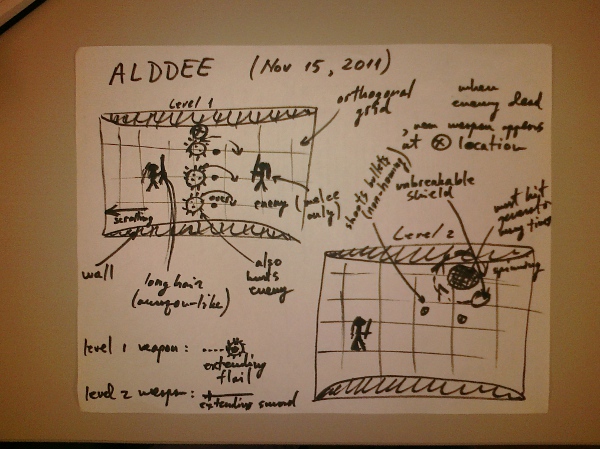 ALDDEE (Nov 15, 2011)
Level 1
orthogonal
grid
when
enemy dead
, new weapon appears
at ⊗ location
enemy (melee
only)
scrolling
wall
long hair
(
-like)
also
hurts
enemy
shoots bullets
(non-homing)
unbreakable
shield
must hit
generator
many times
spawning
Level 2
level 1 weapon:
extending
flail
level 2 weapon:
extending sword